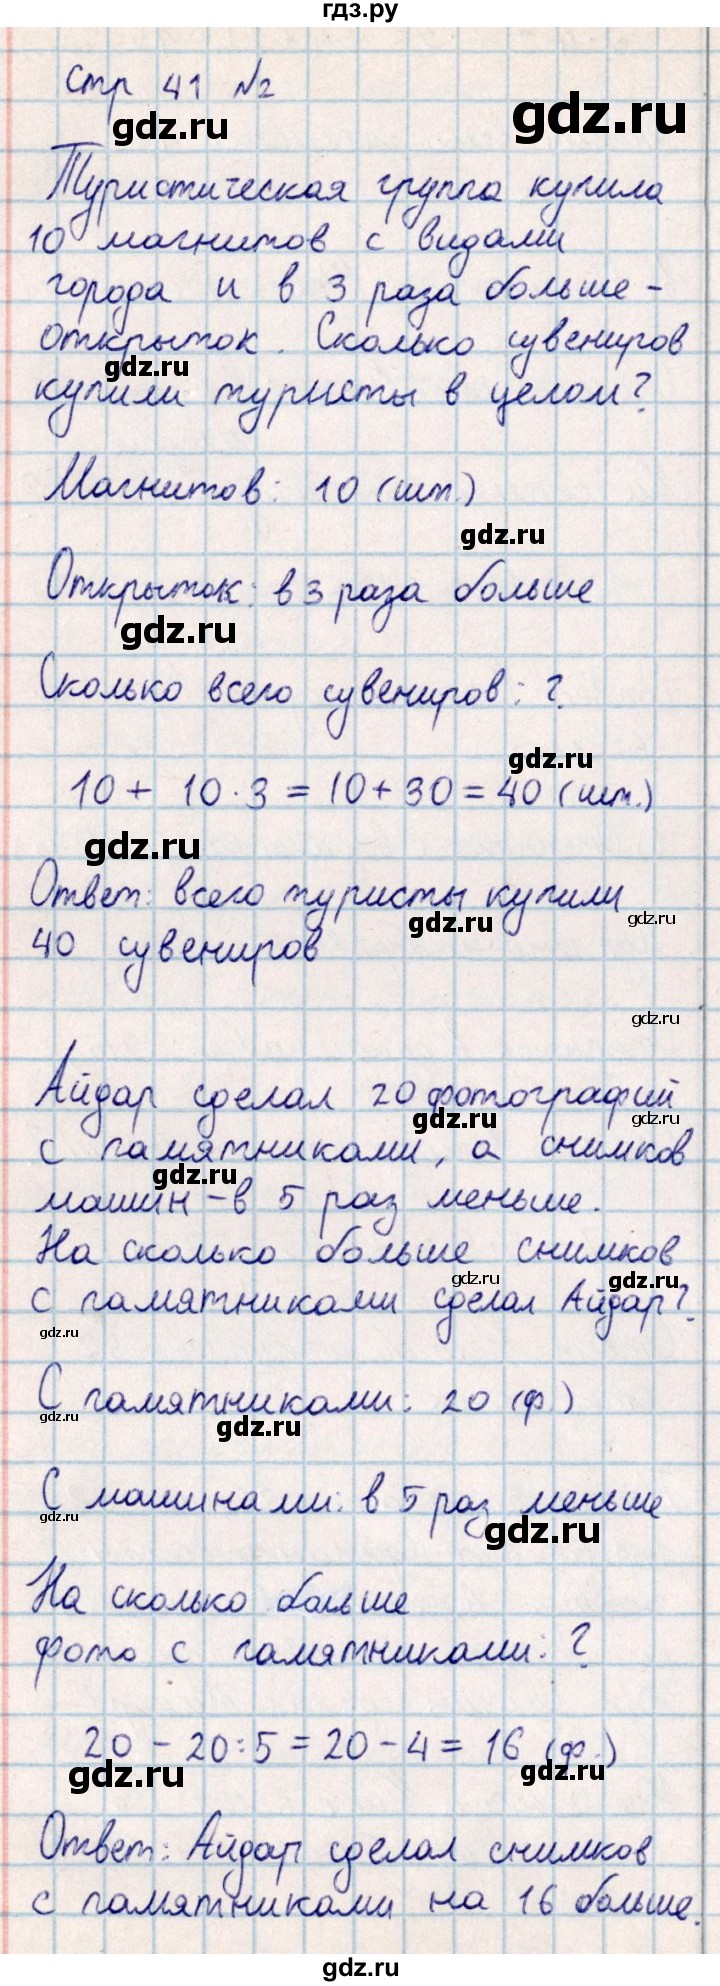 гдз.ру
стр 41 №2
gdz.ru
gdz.ru
Туристическая группа купила
10 магнитов с видами
города и в 3 раза больше -
открыток. Сколько сувениров
gdz.ru
купили туристы в целом?
Магнитов: 10 (шт.)
gdz.ru
Открыток: в 3 раза больше
gdz.ru
Сколько всего сувениров: ?
gdz.ru
10 + 10 · 3 = 10 + 30 = 40 (шт.)
gdz.ru
Ответ: всего туристы купили
gdz.ru
gdz.ru
40 сувениров
gdz.ru
Айдар сделал 20 фотографий
gdz.ru
gdz.ru
с памятниками, а снимков
gdz.ru
машин - в 5 раз меньше.
На сколько больше снимков
gdz.ru
gdz.ru
с памятниками сделал Айдар?
gdz.ru
С памятниками: 20 (ф.)
gdz.ru
gdz.ru
С машинами: в 5 раз меньше
gdz.ru
gdz.ru
На сколько больше
фото с памятниками: ?
20 - 20 : 5 = 20 - 4 = 16 (ф.)
gdz.ru
gdz.ru
Ответ: Айдар сделал снимков
с памятниками на 16 больше.
gdz.ru